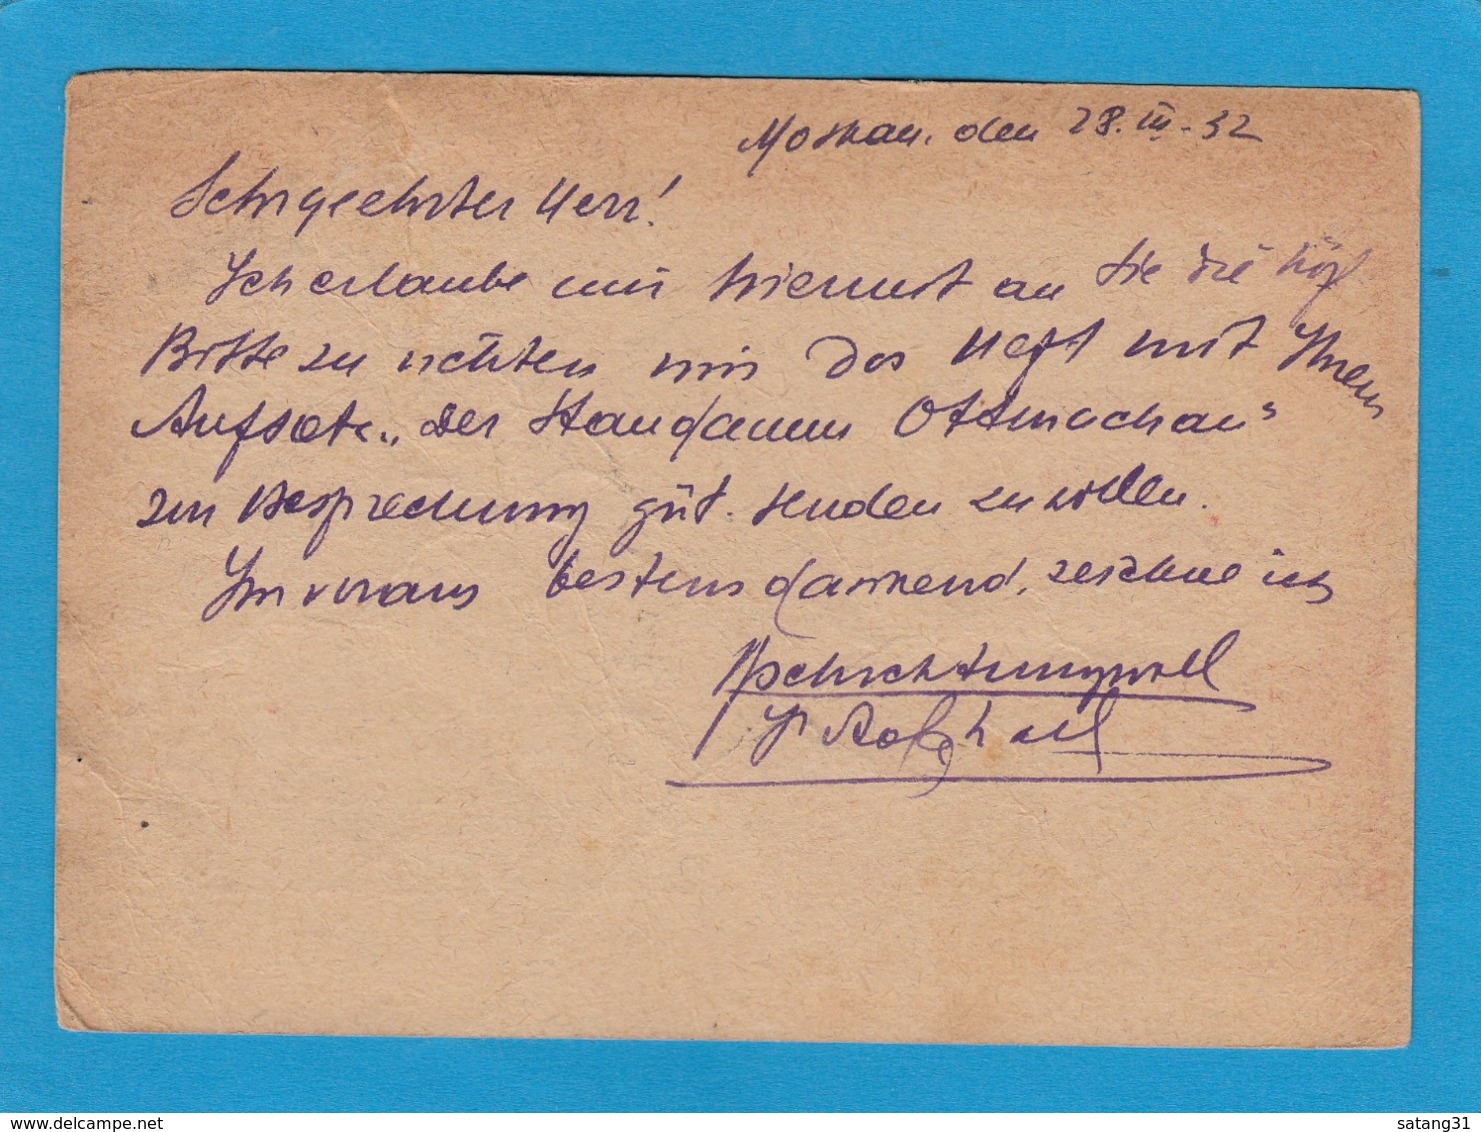 Moskau, den 28. III. 32
Sehrgeehrter Herr!
Ich erlaube mir hiermit an Sie die höfl
Bitte zu richten mir das Heft mit Ihrem
Aufsatz „Der Staudamm Ottmachau"
zur Besprechung güt. senden zu wollen.
Im voraus bestens dankend, zeichne ich
Hochachtungsvoll
satang31